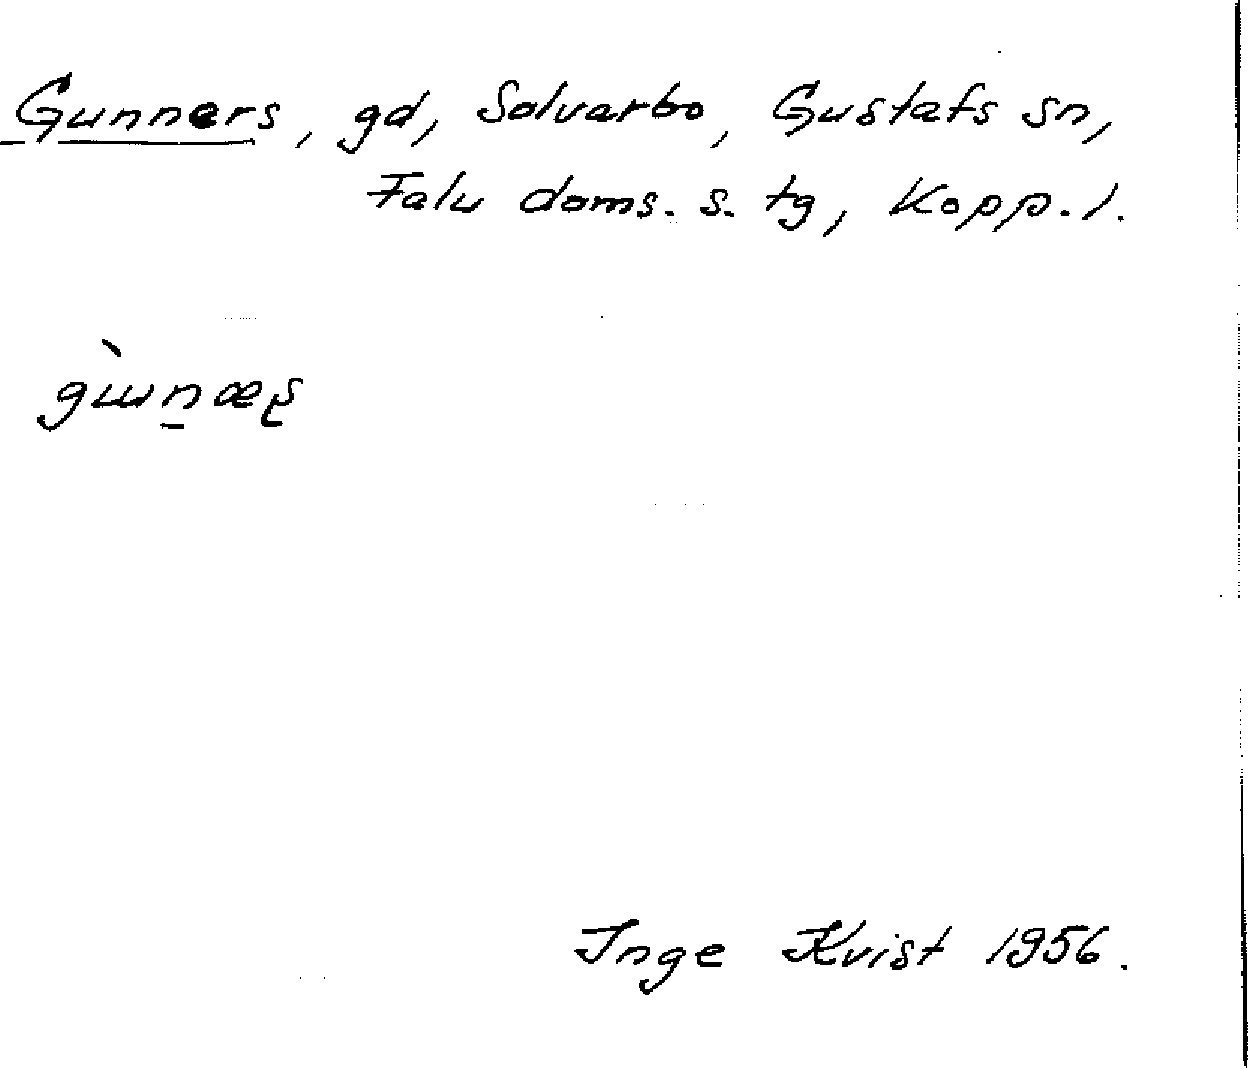 Gunners, gd, Solvarbo, Gustafs sn,
Falu doms. s. tg, Kopp. l.
gɯ̀n̲æʂ
Inge Kvist 1956.